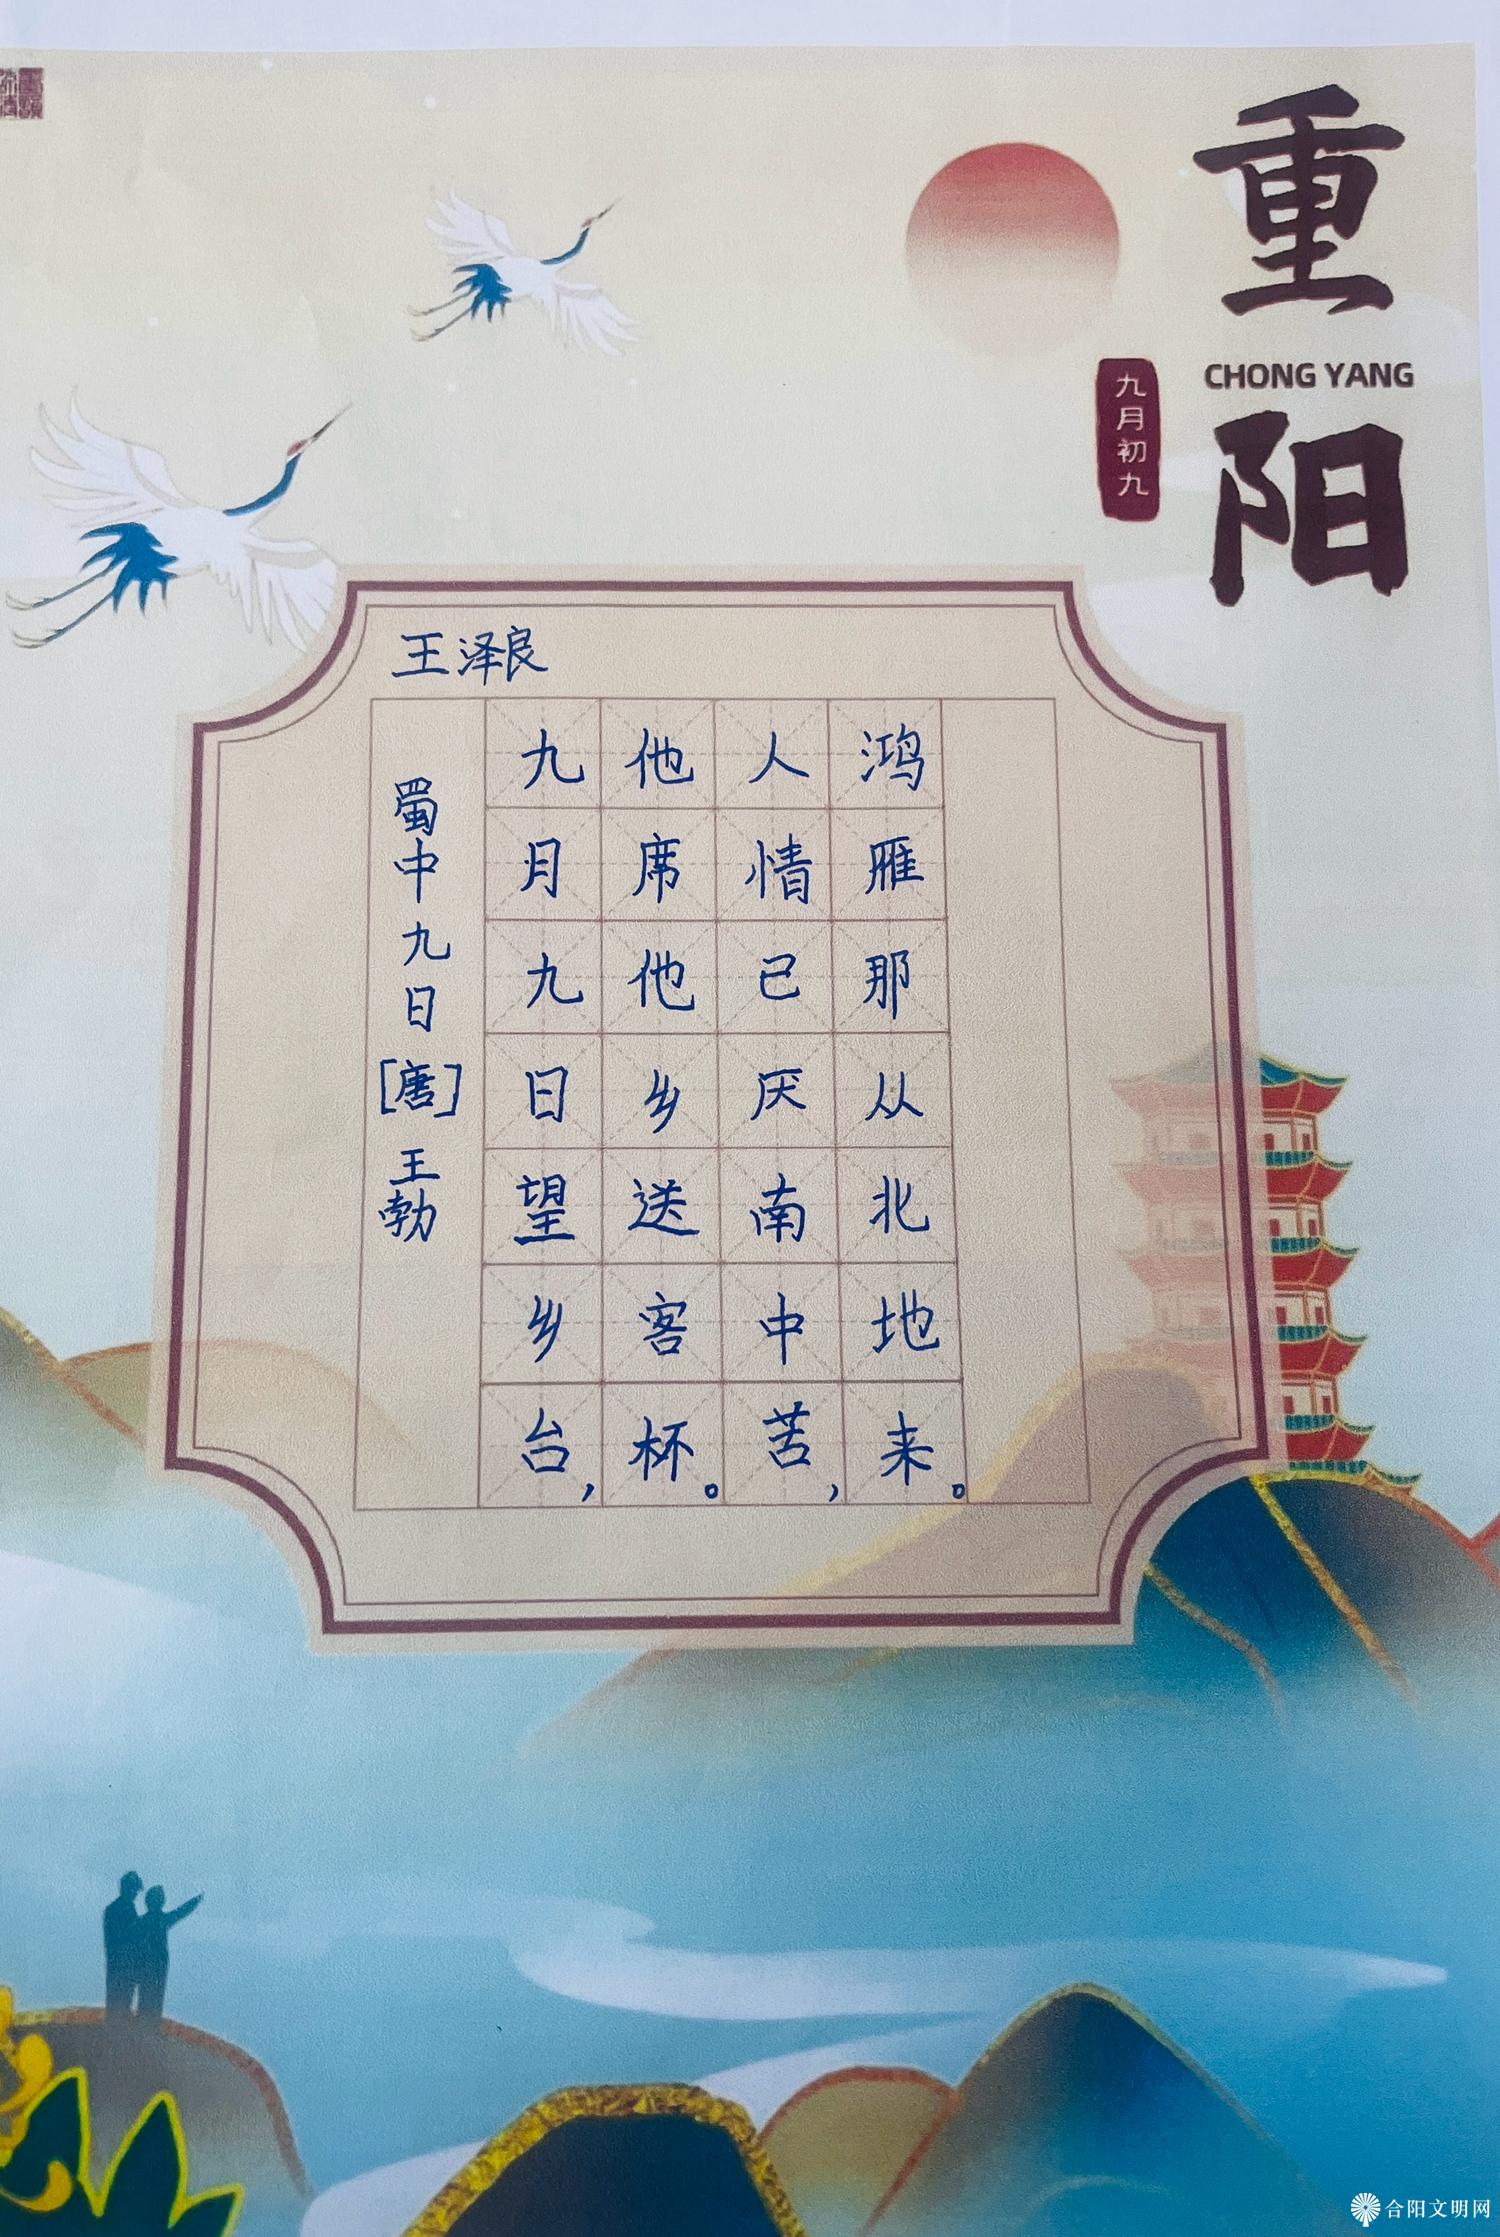 重
CHONG YANG
阳
九月初九
王泽良
蜀中九日[唐]王勃
九月九日望乡台，
他席他乡送客杯。
人情已厌南中苦，
鸿雁那从北地来。
合阳文明网